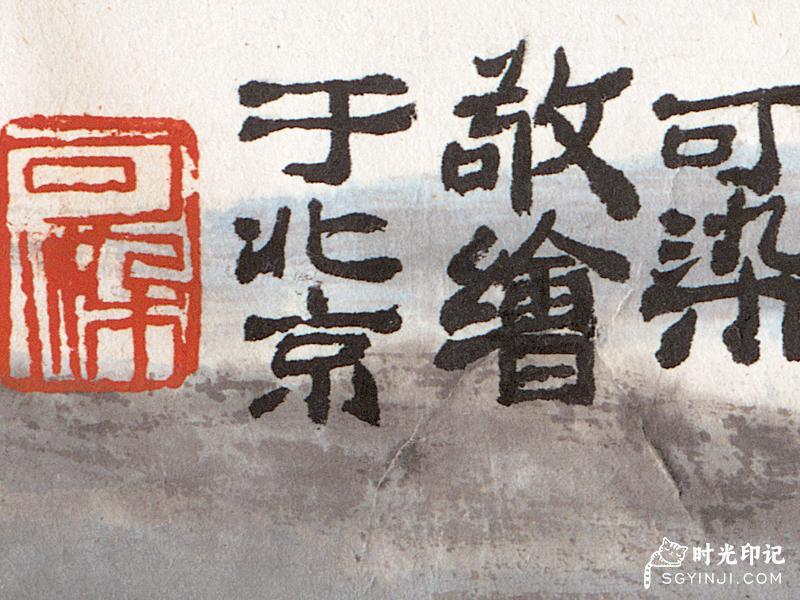 可染
敬繪
于北京
可染
时光印记
SGYINJI.COM